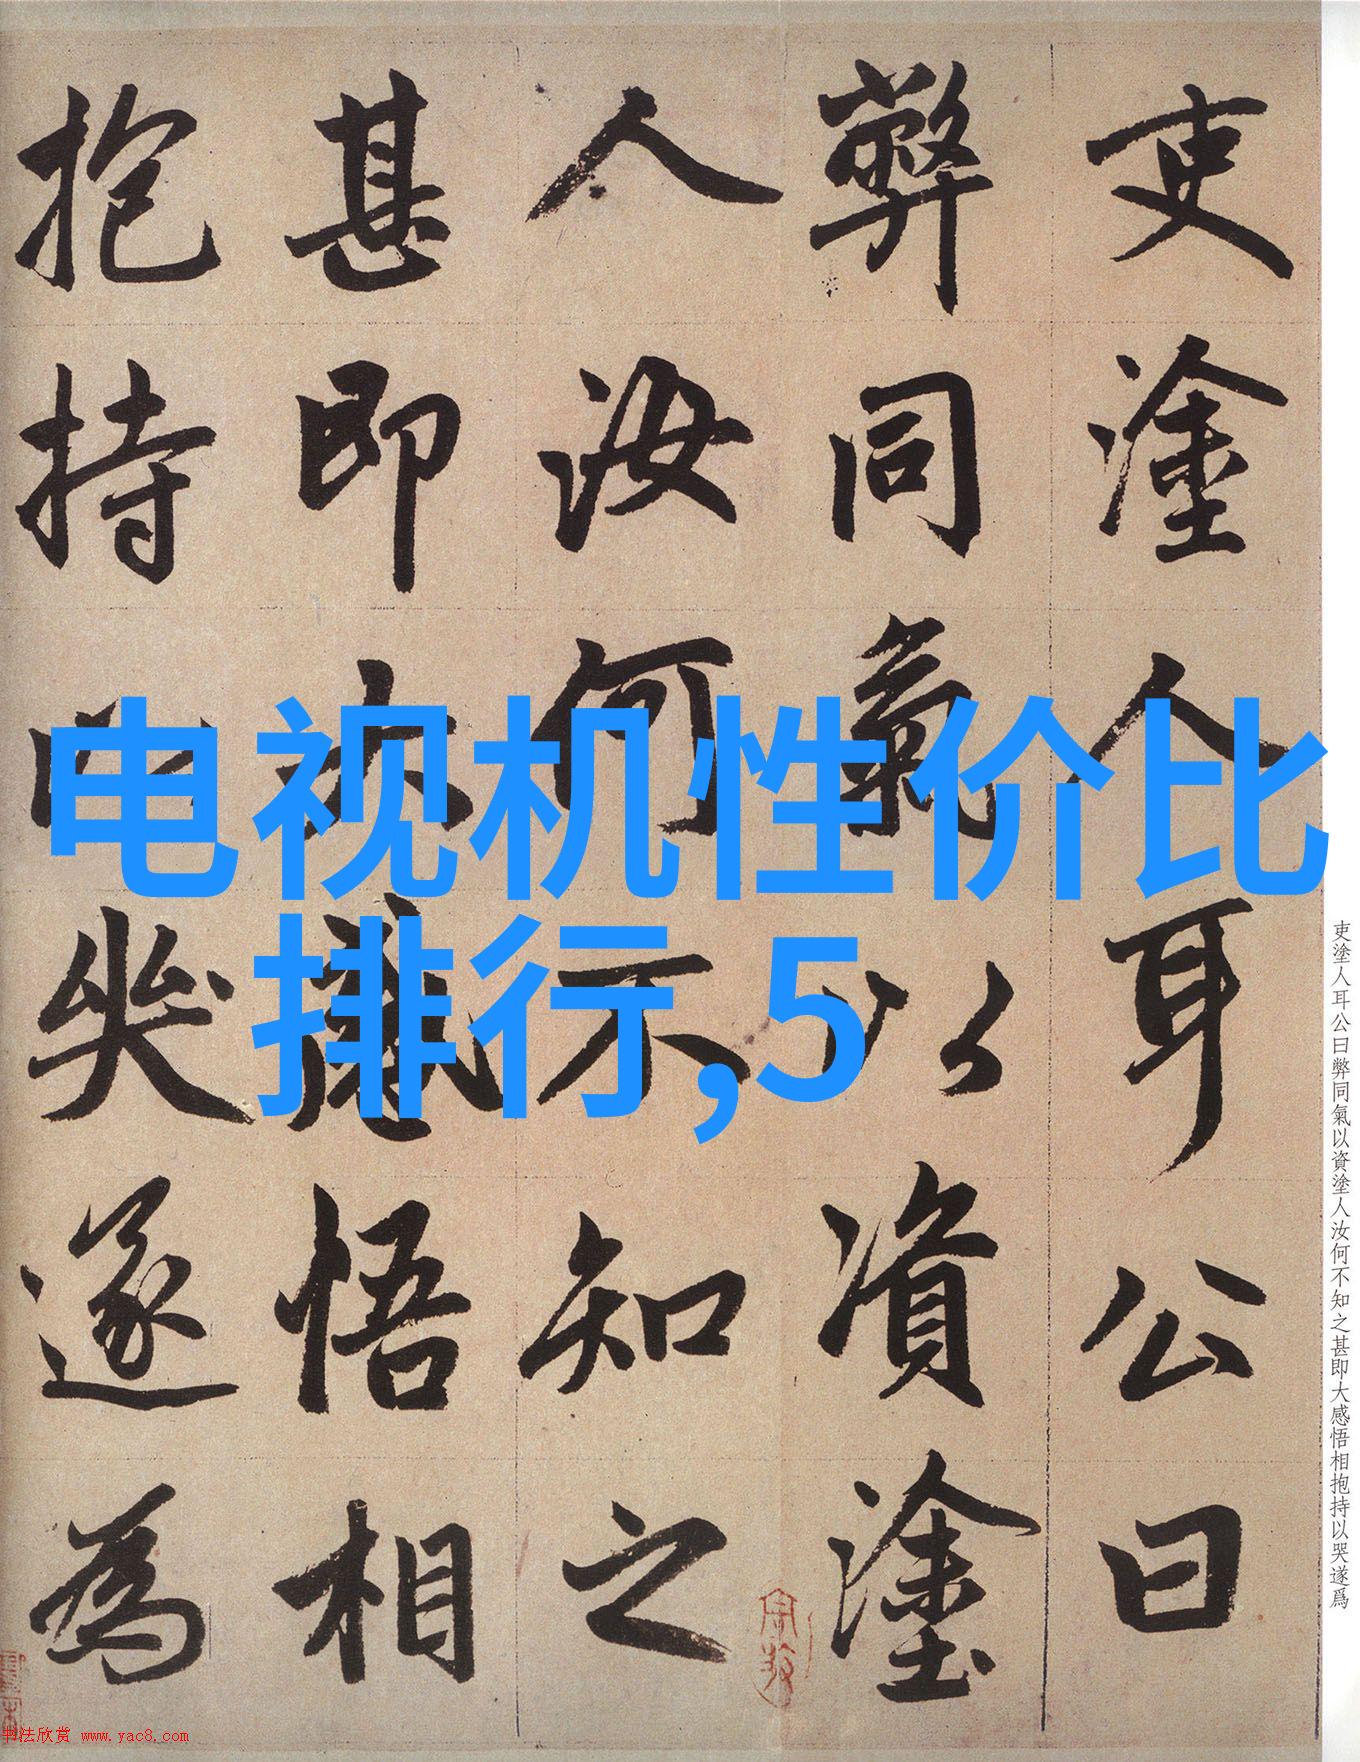 吏塗人耳公曰
弊同氣以資塗
人汝何不知之
甚即大感悟相
抱持以哭遂為
电视机性价比
排行,5
吏塗人耳公曰弊同氣以資塗人汝何不知之甚即大感悟相抱持以哭遂爲
书法欣赏 www.yac8.com